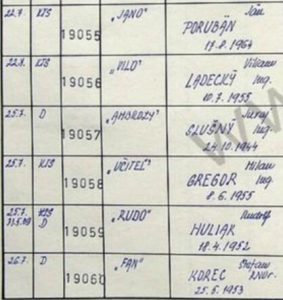 22.7. KTS 19055 „JANO" Ján
PORUBÄN
17.8.1964
22.7. KTS 19056 „VILO" Viliam
LADECKÝ Ing.
10.7.1955
25.7. D 19057 „AMBROZY" Juraj
SLUŠNÝ Ing.
24.10.1944
25.7. KTS 19058 „UČITEĽ" Milan
GREGOR Ing.
8.6.1955
25.7. KTS 19059 „RUDO" Rudolf
D HULIAK
18.4.1952
26.7. D 19060 „FAN" Štefan
KOREC
25.5.1953